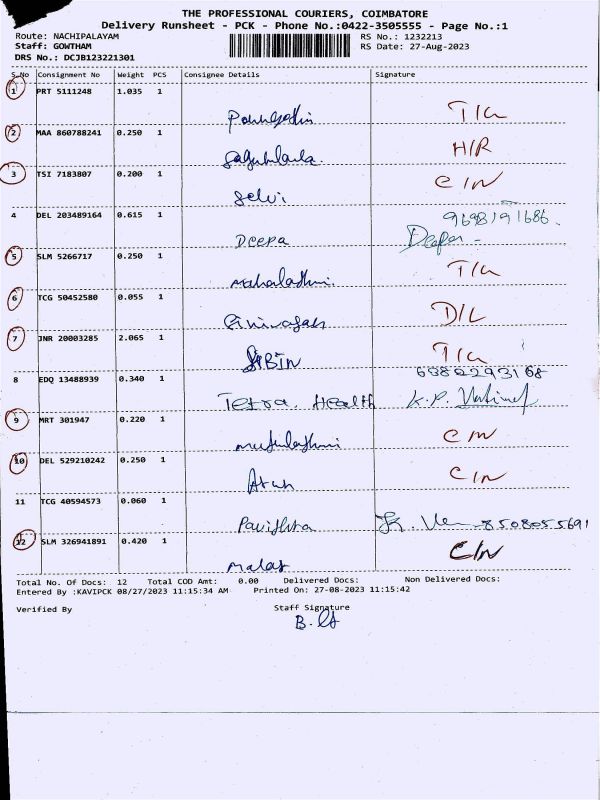 THE PROFESSIONAL COURIERS, COIMBATORE
Delivery Runsheet - PCK - Phone No.:0422-3505555 - Page No.:1
Route: NACHIPALAYAM RS No.: 1232213
Staff: GOWTHAM RS Date: 27-Aug-2023
DRS No.: DCJB123221301
S.No Consignment No Weight PCS Consignee Details Signature
1 PRT 5111248 1.035 1
T/L
2 MAA 860788241 0.250 1
H/R
3 TSI 7183807 0.200 1 C/N
Selvi
4 DEL 203489164 0.615 1 9698191686
Deepa Deepa
5 SLM 5266717 0.250 1
T/L
6 TCG 50452580 0.055 1
D/L
7 JNR 20003285 2.065 1
T/L
8 EDQ 13488939 0.340 1
Tetra Health K.P.
9 MRT 301947 0.220 1
C/N
Muthulakshmi
10 DEL 529210242 0.250 1
C/N
Arun
11 TCG 40594573 0.060 1
Pavithra 8508055691
12 SLM 326941891 0.420 1 C/N
Malar
Total No. Of Docs: 12 Total COD Amt: 0.00 Delivered Docs: Non Delivered Docs:
Entered By :KAVIPCK 08/27/2023 11:15:34 AM Printed On: 27-08-2023 11:15:42
Verified By Staff Signature